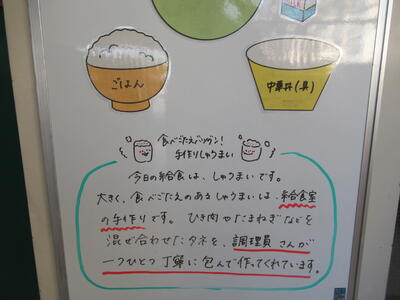 ごはん
中華丼(具)
食べごたえバツグン!
手作りしゅうまい
今日の給食は、しゅうまいです。
大きく、食べごたえのあるしゅうまいは、給食室
の手作りです。ひき肉やたまねぎなどを
混ぜ合わせたタネを、調理員さんが
一つひとつ丁寧に包んで作ってくれています。